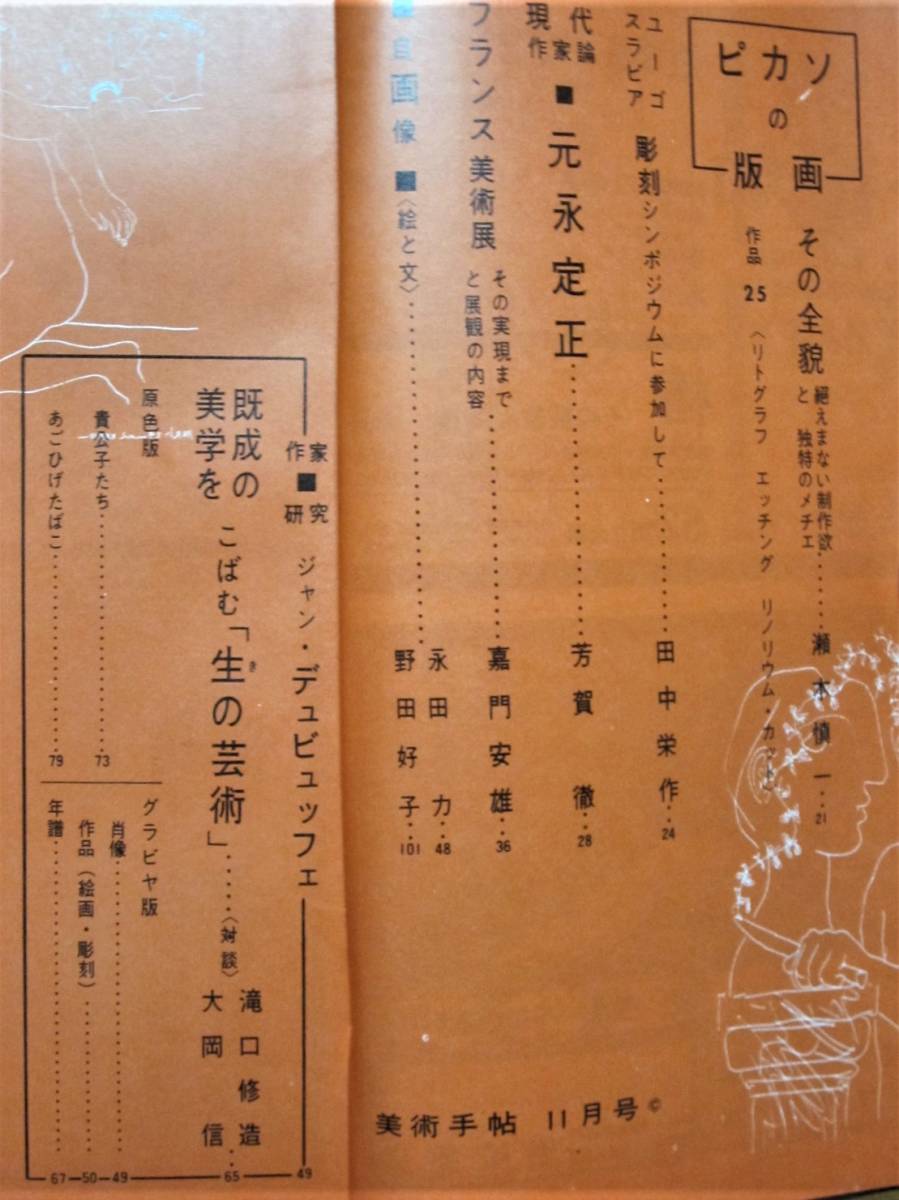 ピカソ
の
版画
その全貌
絕えまない制作欲
と 独特のメチエ
瀬木慎一‥21
作品 25 〈リトグラフ エッチング リノリウム・カット〉
ユーゴ
スラビア
彫刻シンポジウムに参加して
田中栄作‥24
現代
作家論
■ 元永定正
芳賀 徹‥28
フランス美術展
その実現まで
と展観の内容
嘉門安雄‥36
自画像 ■〈絵と文〉
永田 力‥48
野田好子‥101
美術手帖 11月号©
作家
■
研究
ジャン・デュビュッフェ
49
既成の
美学を
こばむ「生の芸術」
き
〈対談〉
滝口修造
大岡 信‥65
原色版
貴公子たち 73
あごひげたばこ 79
グラビヤ版
肖像 49
作品(絵画・彫刻) 50
年譜 67